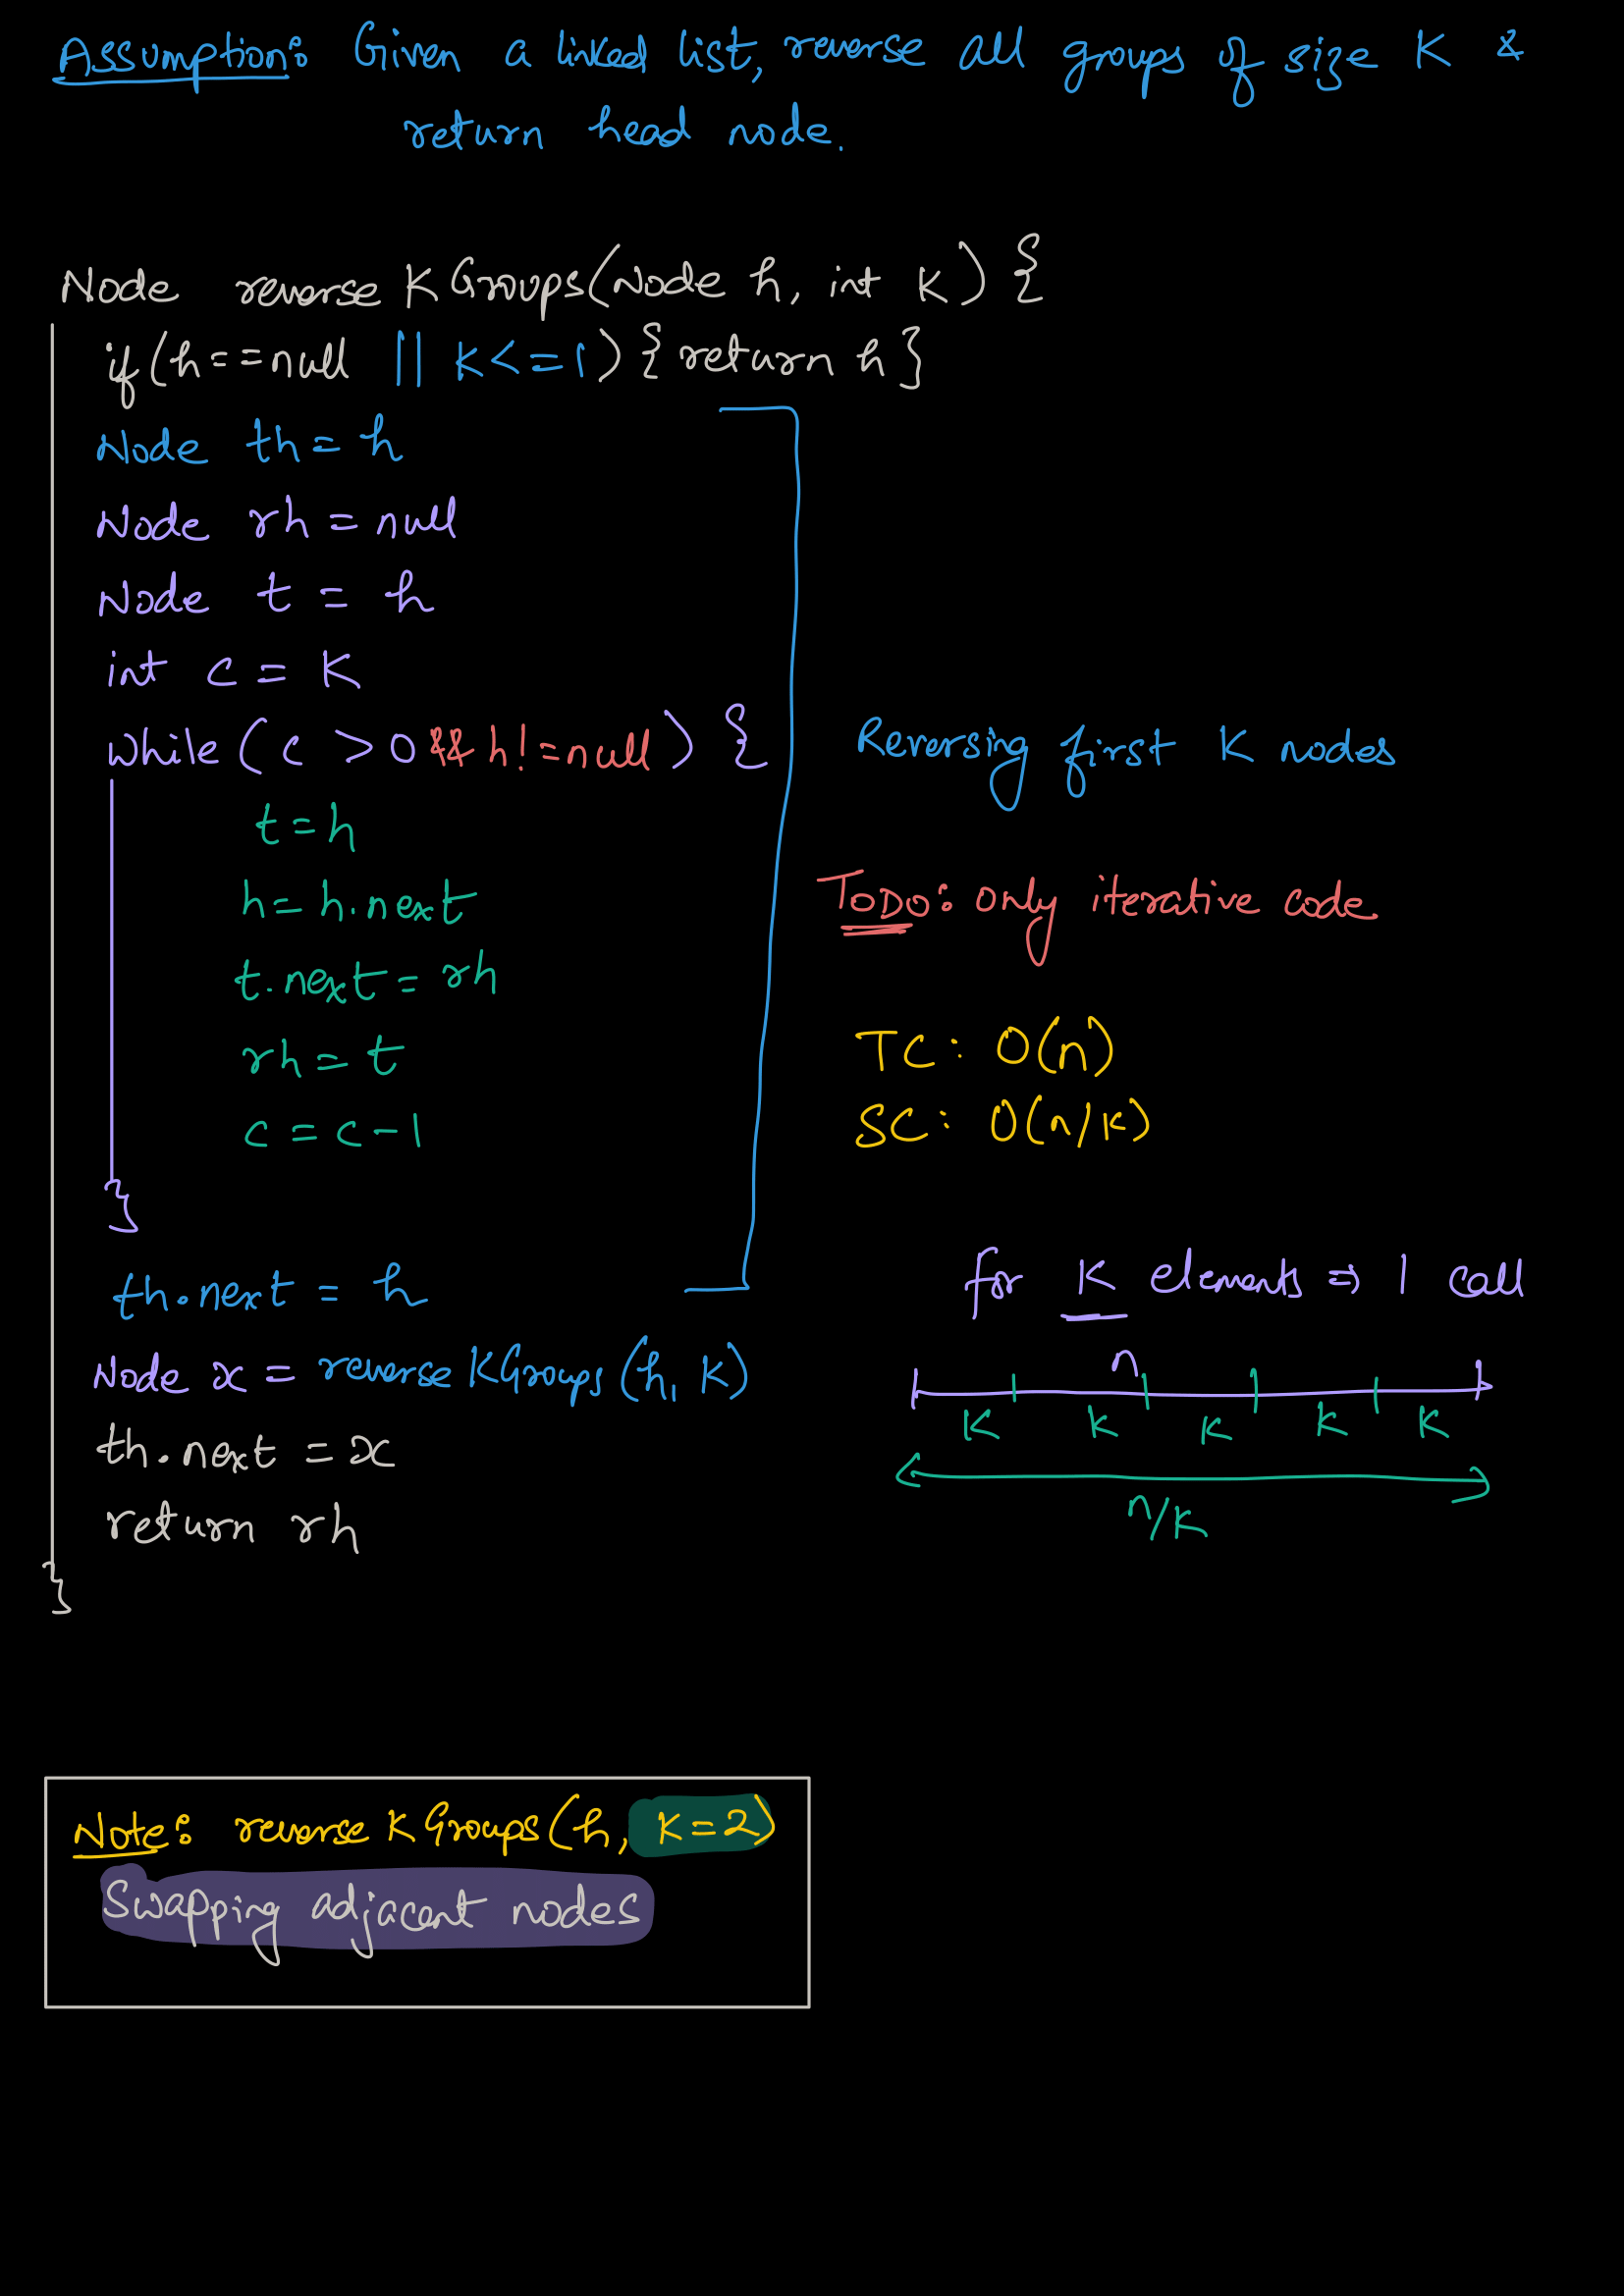 Assumption: Given a linked list, reverse all groups of size K &
return head node.
Node reverse K Groups(Node h, int K) {
if(h==null || K<=1) { return h }
Node th = h
Node rh = null
Node t = h
int c = K
while (c > 0 && h!=null) {
t = h
h = h.next
t.next = rh
rh = t
c = c - 1
}
th.next = h
Node x = reverse KGroups (h, K)
th.next = x
return rh
}
Reversing first K nodes
TODO: only iterative code
TC: O(n)
SC: O(n/K)
for K elements => 1 call
n
K K K K K
n/K
Note: reverse K Groups(h, K=2)
Swapping adjacent nodes